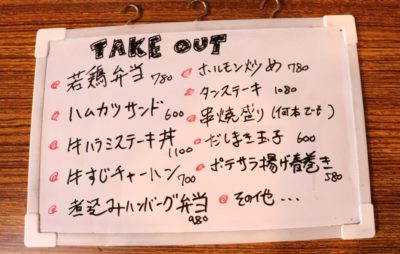 TAKE OUT
若鶏弁当 780
ハムカツサンド 600
牛ハラミステーキ丼 1100
牛すじチャーハン 700
煮込みハンバーグ弁当 980
ホルモン炒め 780
タンステーキ 1080
串焼盛り(何本でも)
だしまき玉子 600
ポテサラ揚げ春巻き 580
その他...